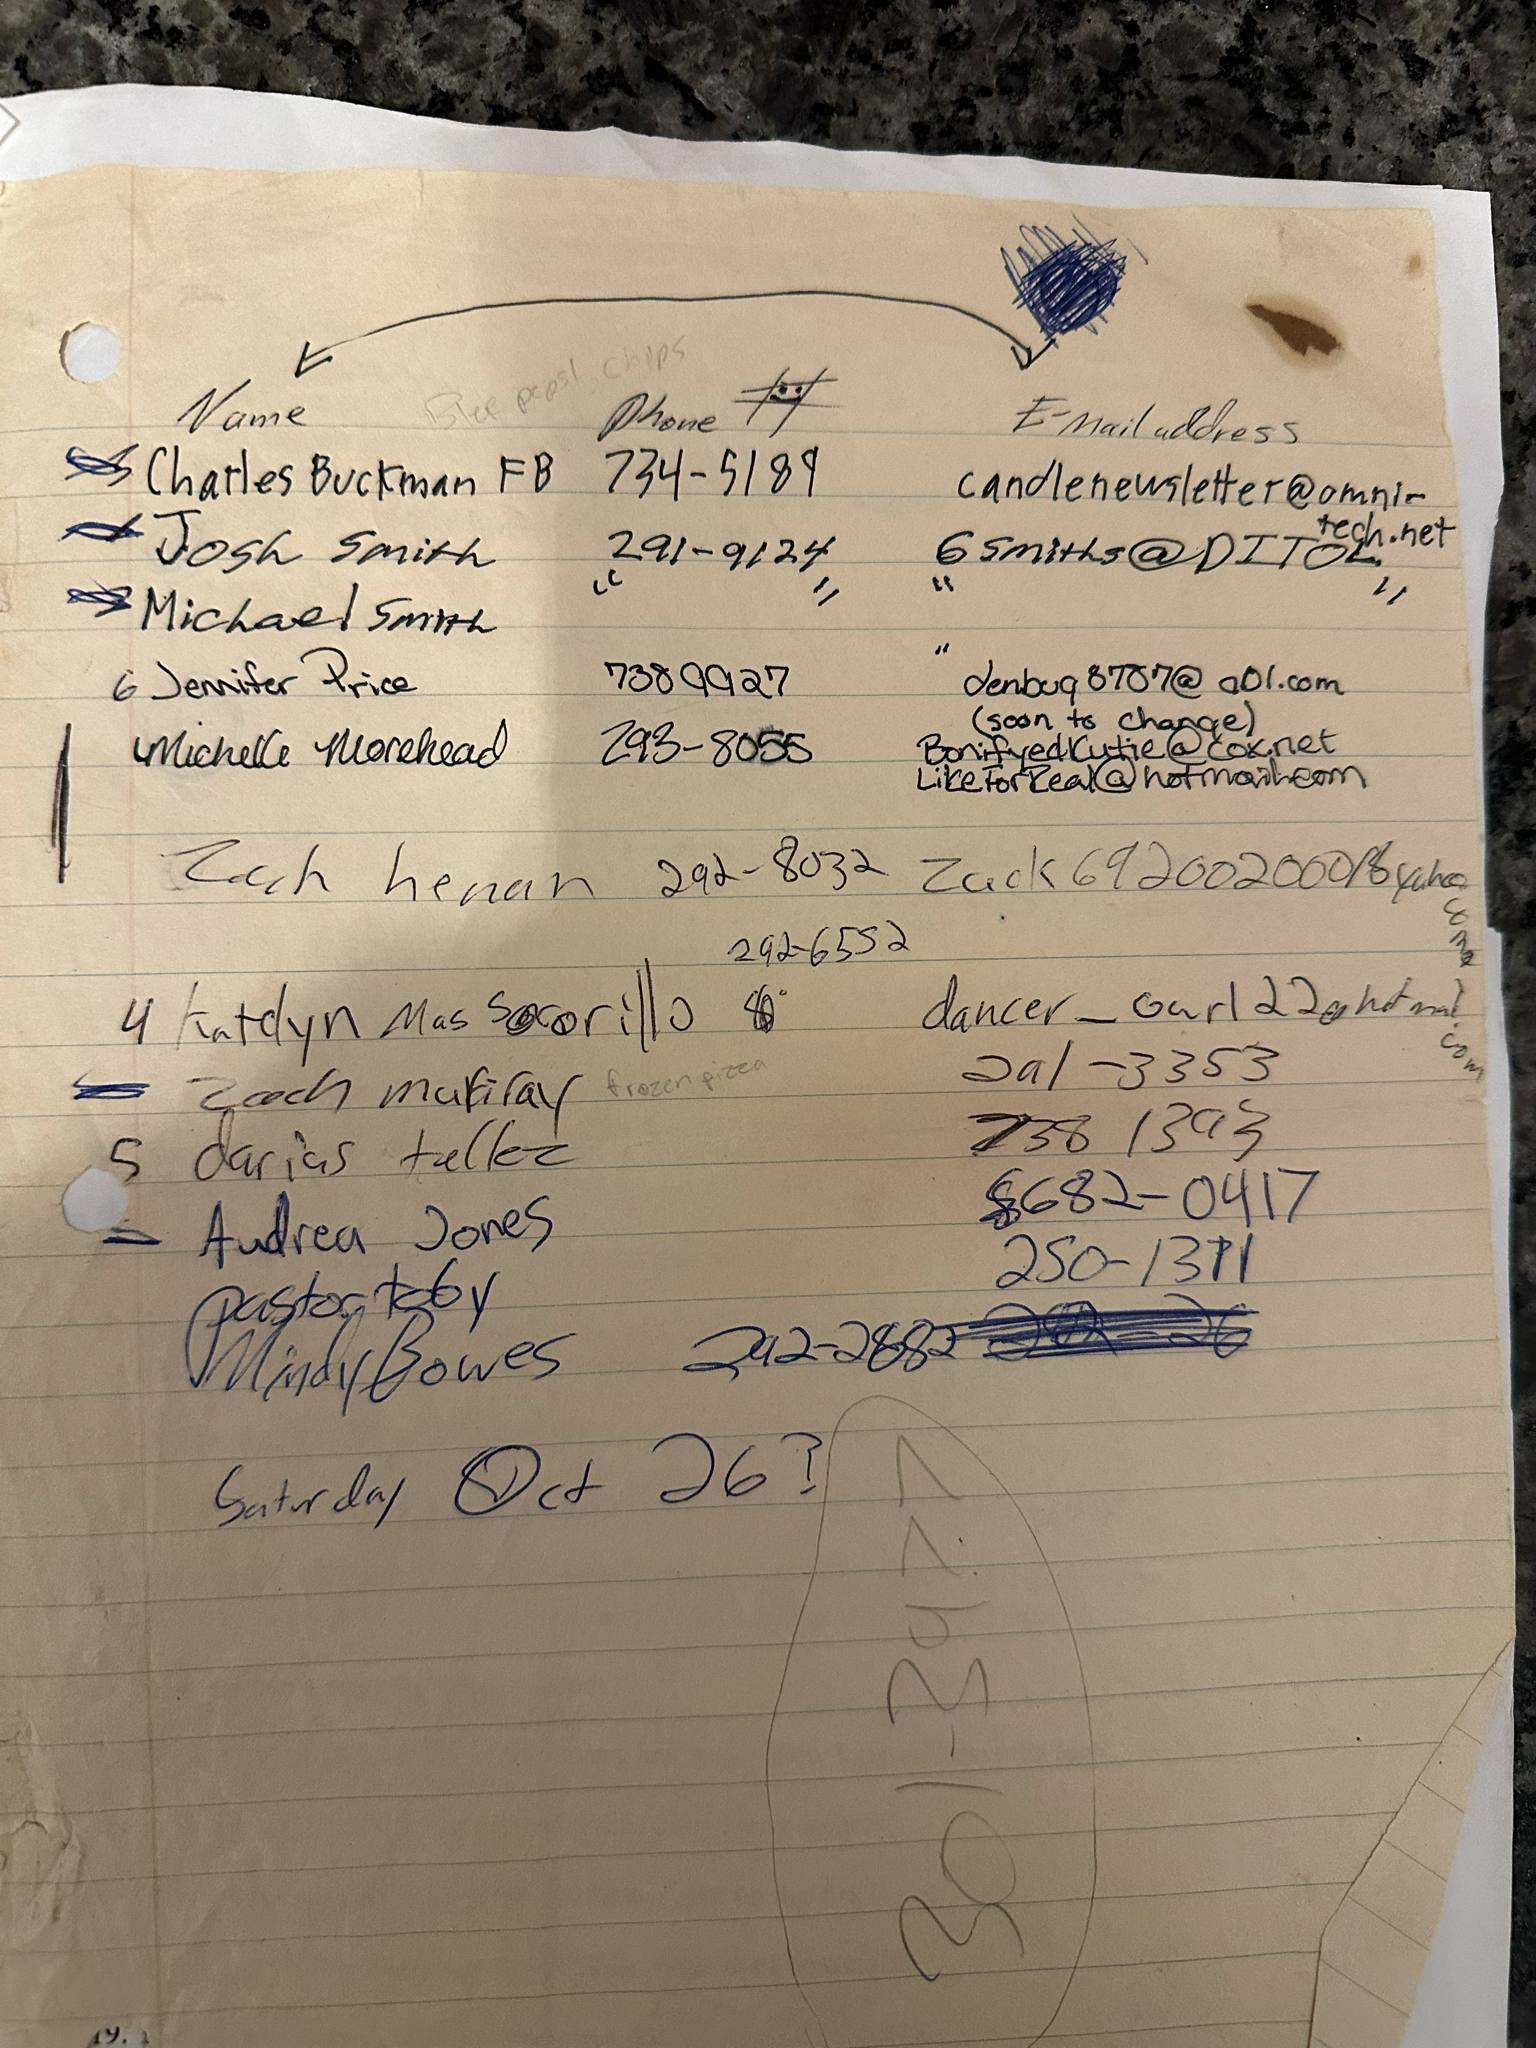 Blue pepsi, chips
Name Phone # E-Mail address
Charles Buckman FB 734-5189 candlenewsletter@omni-
tech.net
Josh Smith 291-9124 6smiths@DITOL
Michael Smith " " " "
6 Jennifer Price 7389927 " denbug8787@aol.com
(soon to change)
Michelle Morehead 293-8055 BonifyedKutie@cox.net
LikeForReal@hotmail.com
Zach henan 292-8032 Zack692002000 yahoo
.com
292-6552
4 Katelyn Massocorillo dancer_gurl22@hotmail
.com
Zach murray frozen pizza 291-3353
5 darius tellez 738 1393
Audrea Jones 682-0417
pastor toby 250-1371
Mindy Bowes 292-2882
Saturday Oct 26?
301-3477
19.